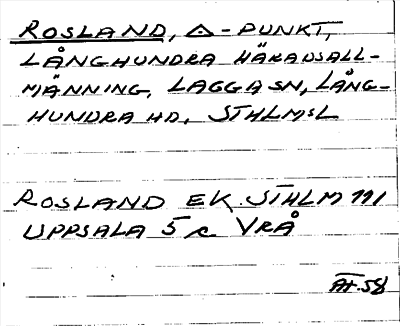 ROSLAND, △-PUNKT,
LÅNGHUNDRA HÄRADSALL-
MÄNNING, LAGGA SN, LÅNG-
HUNDRA HD, STHLMSL
ROSLAND EK. STHLM 111
UPPSALA 5 c VRÅ
ÅH. 58